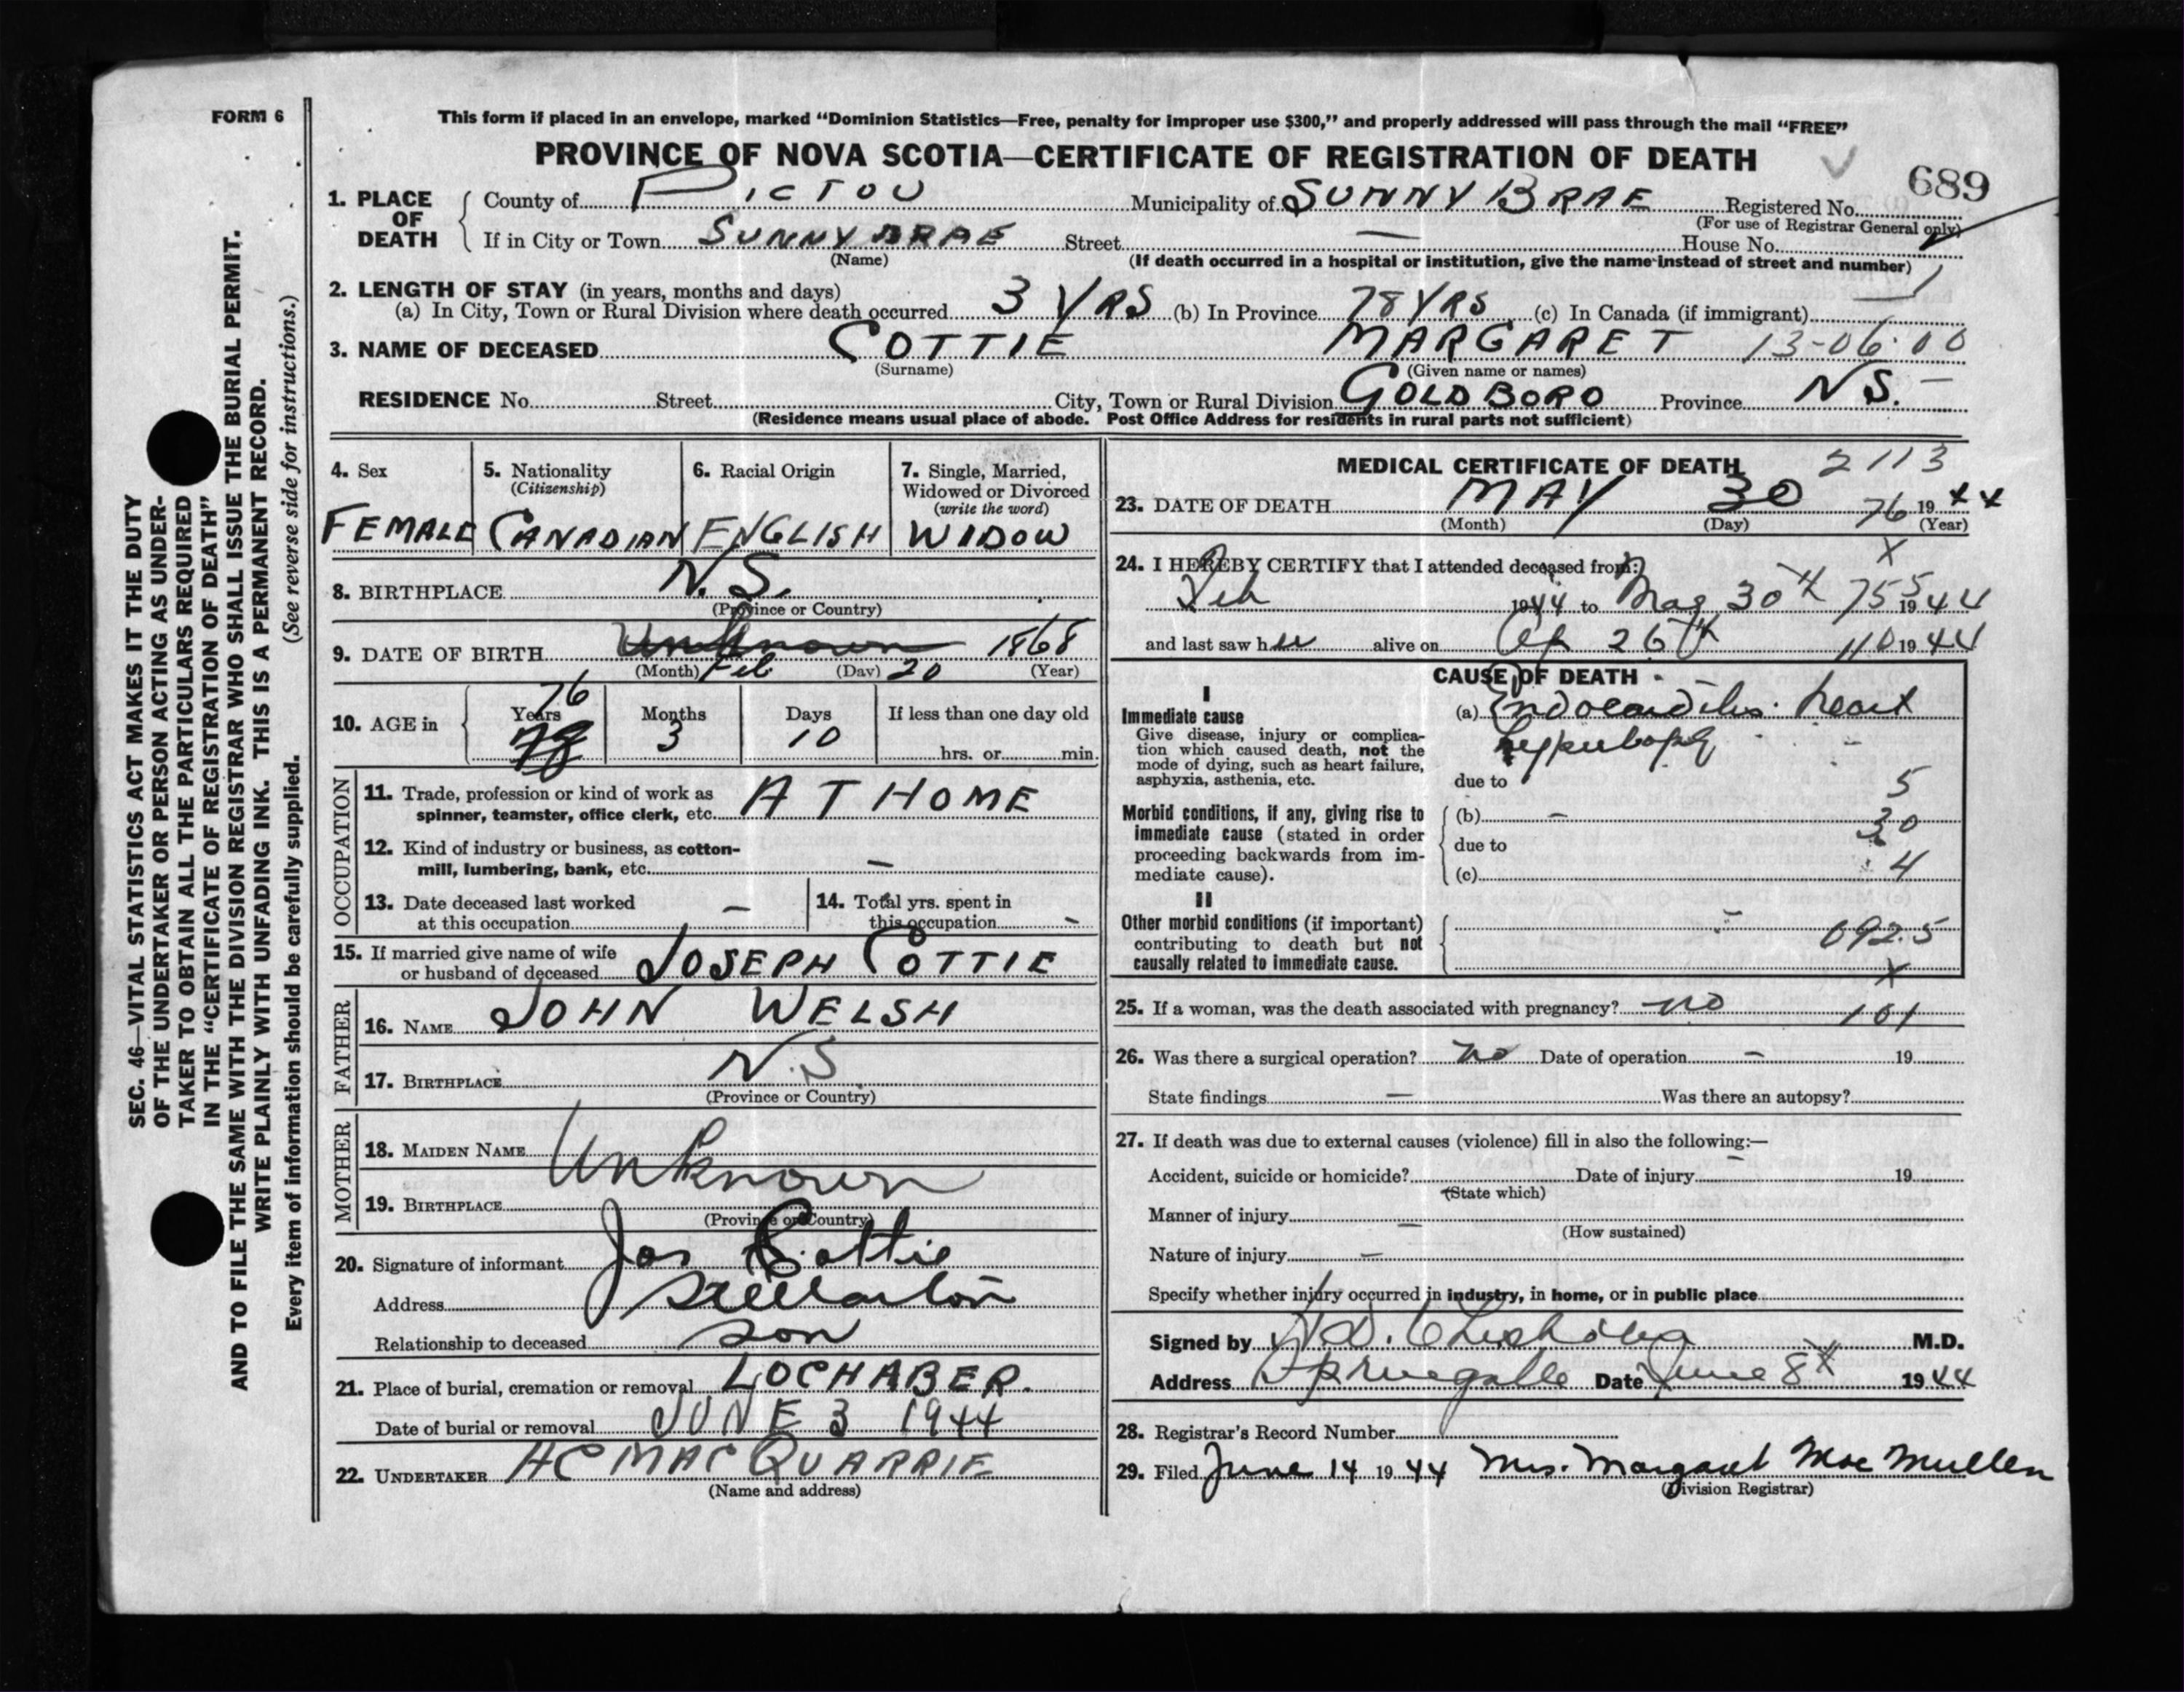 FORM 6
This form if placed in an envelope, marked “Dominion Statistics—Free, penalty for improper use $300,” and properly addressed will pass through the mail “FREE”
PROVINCE OF NOVA SCOTIA—CERTIFICATE OF REGISTRATION OF DEATH
689
1. PLACE OF DEATH County of PICTOU Municipality of SUNNY BRAE Registered No.
(For use of Registrar General only)
If in City or Town SUNNYBRAE Street — House No.
(Name) (If death occurred in a hospital or institution, give the name instead of street and number)
2. LENGTH OF STAY (in years, months and days)
(a) In City, Town or Rural Division where death occurred 3 YRS (b) In Province 78 YRS (c) In Canada (if immigrant)
3. NAME OF DECEASED COTTIE MARGARET 13-06.00
(Surname) (Given name or names)
RESIDENCE No. Street City, Town or Rural Division GOLDBORO Province N S. —
(Residence means usual place of abode. Post Office Address for residents in rural parts not sufficient)
4. Sex FEMALE
5. Nationality (Citizenship) CANADIAN
6. Racial Origin ENGLISH
7. Single, Married, Widowed or Divorced (write the word) WIDOW
8. BIRTHPLACE N. S.
(Province or Country)
9. DATE OF BIRTH Unknown 1868
(Month) Feb (Day) 20 (Year)
10. AGE in Years 76 78 Months 3 Days 10 If less than one day old hrs. or min.
OCCUPATION
11. Trade, profession or kind of work as spinner, teamster, office clerk, etc. AT HOME
12. Kind of industry or business, as cotton-mill, lumbering, bank, etc. —
13. Date deceased last worked at this occupation —
14. Total yrs. spent in this occupation -
15. If married give name of wife or husband of deceased JOSEPH COTTIE
FATHER
16. NAME JOHN WELSH
17. BIRTHPLACE N.S.
(Province or Country)
MOTHER
18. MAIDEN NAME Unknown
19. BIRTHPLACE
(Province or Country)
20. Signature of informant Jos Cottie
Address Stellarton
Relationship to deceased son
21. Place of burial, cremation or removal LOCHABER.
Date of burial or removal JUNE 3 1944
22. UNDERTAKER AC MACQUARRIE
(Name and address)
MEDICAL CERTIFICATE OF DEATH 2113
23. DATE OF DEATH MAY 30 76 1944
(Month) (Day) (Year)
24. I HEREBY CERTIFY that I attended deceased from: x
Feb 1944 to May 30th 755 1944
and last saw her alive on Ap 26th 110 1944
CAUSE OF DEATH
I
Immediate cause
Give disease, injury or complication which caused death, not the mode of dying, such as heart failure, asphyxia, asthenia, etc.
(a) Endocarditis. heart
due to
5
Morbid conditions, if any, giving rise to immediate cause (stated in order proceeding backwards from immediate cause).
(b) — 30
due to
(c) 4
II
Other morbid conditions (if important) contributing to death but not causally related to immediate cause.
092.5
x
25. If a woman, was the death associated with pregnancy? no 101
26. Was there a surgical operation? no Date of operation — 19
State findings — Was there an autopsy?
27. If death was due to external causes (violence) fill in also the following:—
Accident, suicide or homicide? Date of injury 19
(State which)
Manner of injury —
(How sustained)
Nature of injury —
Specify whether injury occurred in industry, in home, or in public place
Signed by M.D.
Address Date June 8th 1944
28. Registrar's Record Number
29. Filed June 14 1944 Mrs. Margaret MacMullen
(Division Registrar)
SEC. 46—VITAL STATISTICS ACT MAKES IT THE DUTY
OF THE UNDERTAKER OR PERSON ACTING AS UNDER-
TAKER TO OBTAIN ALL THE PARTICULARS REQUIRED
IN THE “CERTIFICATE OF REGISTRATION OF DEATH”
AND TO FILE THE SAME WITH THE DIVISION REGISTRAR WHO SHALL ISSUE THE BURIAL PERMIT.
WRITE PLAINLY WITH UNFADING INK. THIS IS A PERMANENT RECORD.
Every item of information should be carefully supplied. (See reverse side for instructions.)